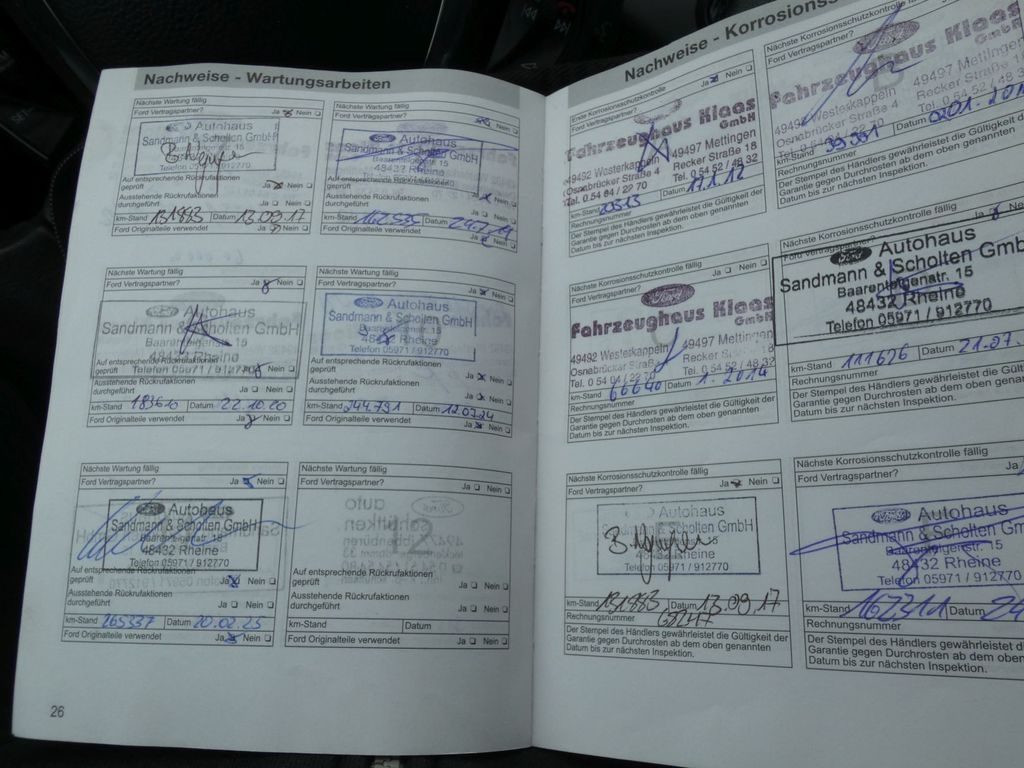 Nachweise - Wartungsarbeiten
Nächste Wartung fällig
Ford Vertragspartner? Ja Nein
Autohaus
Sandmann & Scholten GmbH
Telefon 05971 / 912770
Auf entsprechende Rückrufaktionen
geprüft Ja Nein
Ausstehende Rückrufaktionen
durchgeführt Ja Nein
km-Stand 151983 Datum 13.09.17
Ford Originalteile verwendet Ja Nein
Nächste Wartung fällig
Ford Vertragspartner? Nein
Autohaus
Sandmann & Scholten GmbH
Baarentelgenstr. 15
48432 Rheine
Auf entsprechende Rückrufaktionen
geprüft Ja Nein
Ausstehende Rückrufaktionen
durchgeführt Ja Nein
km-Stand Datum
Ford Originalteile verwendet Ja Nein
Nächste Wartung fällig
Ford Vertragspartner? Ja Nein
Autohaus
Sandmann & Scholten GmbH
Baarentelgenstr. 15
48432 Rheine
Telefon 05971 / 912770
Auf entsprechende Rückrufaktionen
geprüft Ja Nein
Ausstehende Rückrufaktionen
durchgeführt Ja Nein
km-Stand 183610 Datum 22.10.20
Ford Originalteile verwendet Ja Nein
Nächste Wartung fällig
Ford Vertragspartner? Ja Nein
Autohaus
Sandmann & Scholten GmbH
Baarentelgenstr. 15
48432 Rheine
Telefon 05971 / 912770
Auf entsprechende Rückrufaktionen
geprüft Ja Nein
Ausstehende Rückrufaktionen
durchgeführt Ja Nein
km-Stand 244.791 Datum 12.07.24
Ford Originalteile verwendet Ja Nein
Nächste Wartung fällig
Ford Vertragspartner? Ja Nein
Autohaus
Sandmann & Scholten GmbH
Baarentelgenstr. 15
48432 Rheine
Telefon 05971 / 912770
Auf entsprechende Rückrufaktionen
geprüft Ja Nein
Ausstehende Rückrufaktionen
durchgeführt Ja Nein
km-Stand 265337 Datum 20.02.25
Ford Originalteile verwendet Ja Nein
Nächste Wartung fällig
Ford Vertragspartner? Ja Nein
Auf entsprechende Rückrufaktionen
geprüft Ja Nein
Ausstehende Rückrufaktionen
durchgeführt Ja Nein
km-Stand Datum
Ford Originalteile verwendet Ja Nein
26
Nachweise - Korrosionss
Erste Korrosionsschutzkontrolle
Ford Vertragspartner? Ja Nein
Fahrzeughaus Klaas
GmbH
49492 Westerkappeln 49497 Mettingen
Osnabrücker Straße 4 Recker Straße 18
Tel. 0 54 04 / 22 70 Tel. 0 54 52 / 48 32
km-Stand 20513 Datum 17.1.12
Rechnungsnummer
Der Stempel des Händlers gewährleistet die Gültigkeit der
Garantie gegen Durchrosten ab dem oben genannten
Datum bis zur nächsten Inspektion.
Nächste Korrosionsschutzkontrolle
Ford
Fahrzeughaus Klaas
GmbH
49492 Westerkappeln 49497 Mettingen
Osnabrücker Straße 4 Recker Straße
Tel. 0 54 52
km-Stand Datum
Rechnungsnummer
Der Stempel des Händlers gewährleistet die Gültigkeit d
Garantie gegen Durchrosten ab dem oben genannten
Datum bis zur nächsten Inspektion.
Nächste Korrosionsschutzkontrolle fällig
Ford Vertragspartner? Ja Nein
Ford
Fahrzeughaus Klaas
GmbH
49492 Westerkappeln 49497 Mettingen
Osnabrücker Straße Recker Str. 18
Tel. 0 54 04 / 22 70 Tel. 0 54 52 / 48 32
km-Stand 66640 Datum 1. 2014
Rechnungsnummer
Der Stempel des Händlers gewährleistet die Gültigkeit der
Garantie gegen Durchrosten ab dem oben genannten
Datum bis zur nächsten Inspektion.
Nächste Korrosionsschutzkontrolle fällig
Ford Vertragspartner? Ja Nein
Ford Autohaus
Sandmann & Scholten Gmb
Baarentelgenstr. 15
48432 Rheine
Telefon 05971 / 912770
km-Stand 111626 Datum 21.07.
Rechnungsnummer
Der Stempel des Händlers gewährleistet die Gültigkeit
Garantie gegen Durchrosten ab dem oben genannten
Datum bis zur nächsten Inspektion.
Nächste Korrosionsschutzkontrolle fällig
Ford Vertragspartner? Ja Nein
Autohaus
Sandmann & Scholten GmbH
48432 Rheine
Telefon 05971 / 912770
km-Stand 151983 Datum 13.09.17
Rechnungsnummer
Der Stempel des Händlers gewährleistet die Gültigkeit der
Garantie gegen Durchrosten ab dem oben genannten
Datum bis zur nächsten Inspektion.
Nächste Korrosionsschutzkontrolle fällig
Ford Vertragspartner? Ja
Autohaus
Sandmann & Scholten Gmb
Baarentelgenstr. 15
48432 Rheine
Telefon 05971 / 912770
km-Stand Datum
Rechnungsnummer
Der Stempel des Händlers gewährleistet die Gültigk
Garantie gegen Durchrosten ab dem oben genann
Datum bis zur nächsten Inspektion.